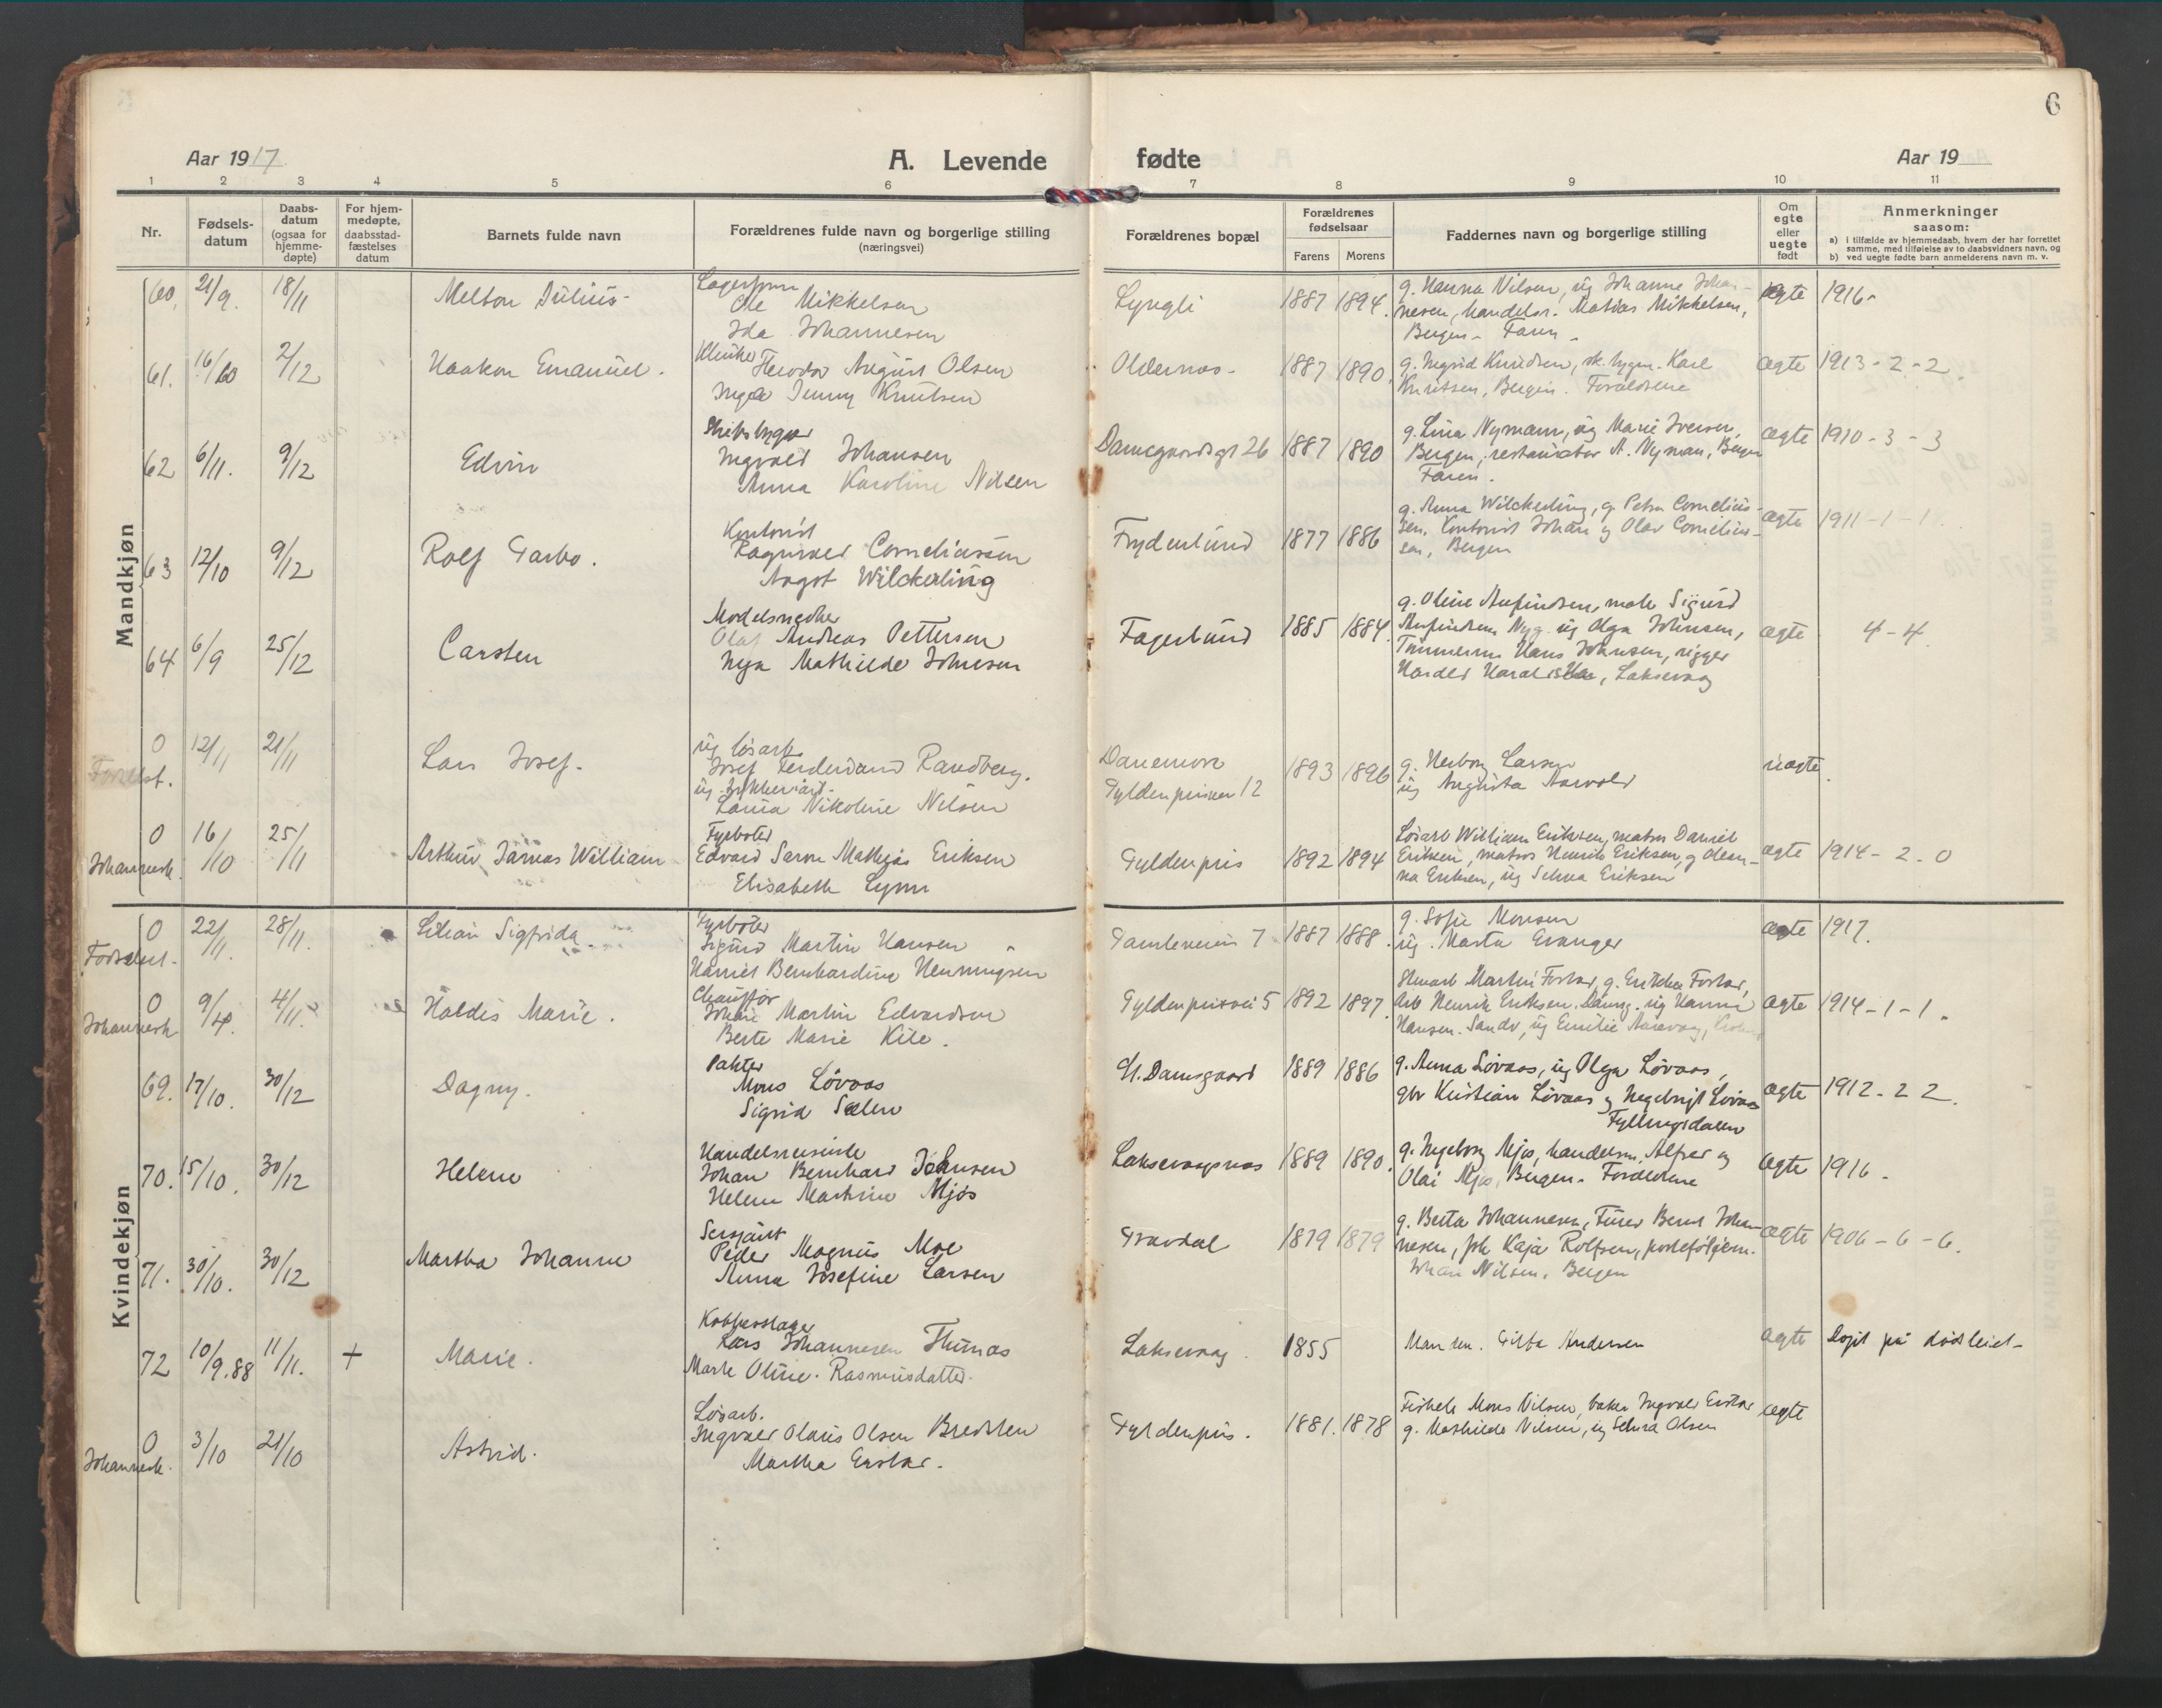 6
Aar 1917
A. Levende fødte
Aar 19
1 2 3 4 5 6 7 8 9 10 11
Nr.
Fødsels-
datum
Daabs-
datum
(ogsaa for
hjemme-
døpte)
For hjem-
medøpte,
daabsstad-
fæstelses
datum
Barnets fulde navn
Forældrenes fulde navn og borgerlige stilling
(næringsvei)
Forældrenes bopæl
Forældrenes
fødselsaar
Farens Morens
Faddernes navn og borgerlige stilling
Om
egte
eller
uegte
født
Anmerkninger
saasom:
a) i tilfælde av hjemmedaab, hvem der har forrettet
samme, med tilføielse av to daabsvidners navn, og
b) ved uegte fødte barn anmelderens navn m. v.
Mandkjøn
60. 21/9. 18/11 Melton Julius
Ole Mikkelsen
Ida Johannesen
Lyngli 1887 1894.
g. Hanna Nilsen, ug Johanne Johan-
nesen, handelsr. Matias Mikkelsen,
Bergen - Faren -
egte 1916-
61. 16/10 2/12 Haakon Emanuel.
Klinker Theodor August Olsen
Inga Jenny Knutsen
Oldernes - 1887 1890.
g. Ingrid Knudsen, sk. bygm. Karl
Knutsen, Bergen. Forældrene
ægte 1913-2-2.
62 6/11. 9/12 Edvin
Skibsbygger
Ingvald Johansen
Anna Karoline Nilsen
Damsgaardsgt 26 1887 1890
g. Lina Nyman, ug Marie Iversen,
Bergen, restauratør A. Nyman, Bergen
Faren.
ægte 1910-3-3
63 12/10 9/12 Rolf Garbo.
Kontorist
Ragnvald Corneliussen
Aagot Wilckerling
Frydenlund 1877 1886
g. Anna Wilckerling, g. Petra Cornelius-
sen. Kontorist Johan og Olav Cornelius-
sen, Bergen
ægte 1911-1-1
64 6/9 25/12 Carsten
Modelsnedker
Olaf Andreas Pettersen
Mathilde Johnsen
Fagerlund 1885 1884.
g. Oline Anfindsen, maler Sigurd
Anfindsen Nyg. ug Olga Johnsen,
Tømmerm Hans Johnsen, rigger
Laksevaag
ægte 4-4.
0 12/11 21/11 Lars Josef.
ug løsarb.
Josef Ferdinand Randberg.
Laura Nikoline Nilsen
Gyldenprisvei 12 1893 1896
g. Herborg Larsen
ug Augusta Aarvold
uægte.
0 16/10 25/11
Johannesk. Arthur Jarnas William
Fyrbøter
Eriksen
Elisabeth Lynn
Gyldenpris 1892 1894
Løsarb William Eriksen, matros Daniel
Eriksen, matros Henrik Eriksen, g Olean-
na Eriksen, ug Selma Eriksen
ægte 1914-2-0
Kvindekjøn
0 22/11. 28/11. Lilian Sigfrida
Fyrbøter
Sigurd Martin Hansen
Harriet Bernhardine Henningsen
7 1887 1888.
g. Sofie Monsen
ug. Marta Evanger
ægte 1917.
0 9/4. 4/11.
Johannesk Haldis Marie.
Chauffør
Johan Martin Edvardsen
Berte Marie Kile.
Gyldenprisvei 5 1892 1897.
ug Hanna
Hansen. Sandv, ug Emilie
ægte 1914-1-1.
69. 17/10. 30/12 Dagny.
Pakter
Mons Løvaas
Sigrid Sælen
St. Damsgaard 1889 1886
g. Anna Løvaas, ug Olga Løvaas,
gbr Kristian Løvaas og Ingebrigt Løvaas
Fyllingsdalen
ægte 1912-2 2.
70. 15/10. 30/12 Helene
Handelsreisende
Johan Bernhard Johnsen
Helene Martine Mjøs
Laksevaagnæs 1889 1890.
g. Ingeborg Mjøs, handelsm. Alfred og
Olai Mjøs, Bergen. Forældrene
ægte 1916.
71. 30/10. 30/12 Martha Johanne
Sersjant
Peder Magnus Moe
Anna Josefine Larsen
Gravdal 1879 1879
g. Berta Johannesen, Furer Bernt Johan-
nesen, frk Kaja Rolfsen,
Johan Nilsen, Bergen
ægte 1906-6-6.
72 10/9.88 11/11. + Marie.
Kobberslager
Lars Johannesen Thunas
Marte Oline Rasmusdatter.
Laksevaag. 1855
Andersen
ægte Døpt på dødsleiet-
0 3/10 21/10
Johannesk. Astrid.
Løsarb.
Ingvald Olaus Olsen Bredsten
Martha Erstad.
Gyldenpris. 1881. 1878
Fisker Mons Nilsen, baker Ingvald Erstad
g. Mathilde Nilsen, ug Selma Olsen
ægte